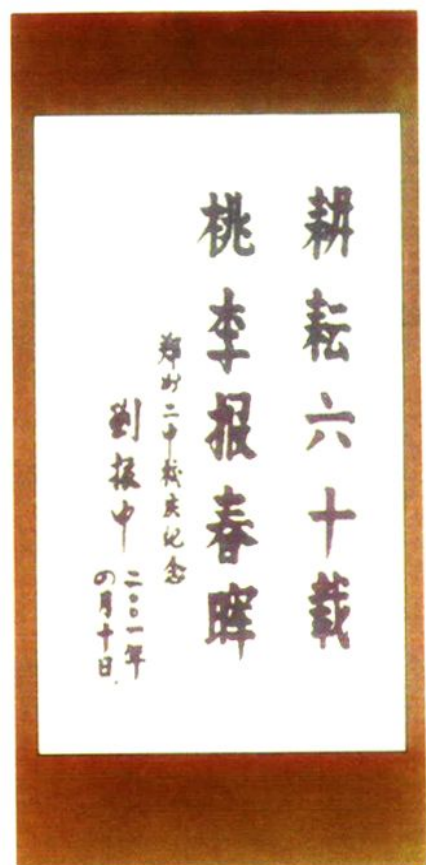 耕耘六十载
桃李报春晖
郑州二中校庆纪念
劉振中
二〇〇一年
四月十日